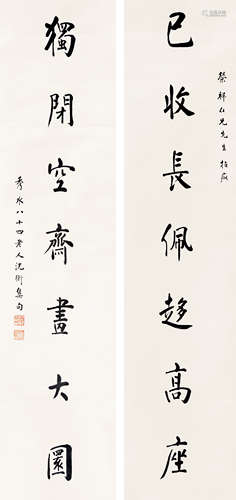 榮邦仁兄先生指疵
已收長佩趍高座
獨閉空齋畫大圜
秀水八十四老人沈衛集句